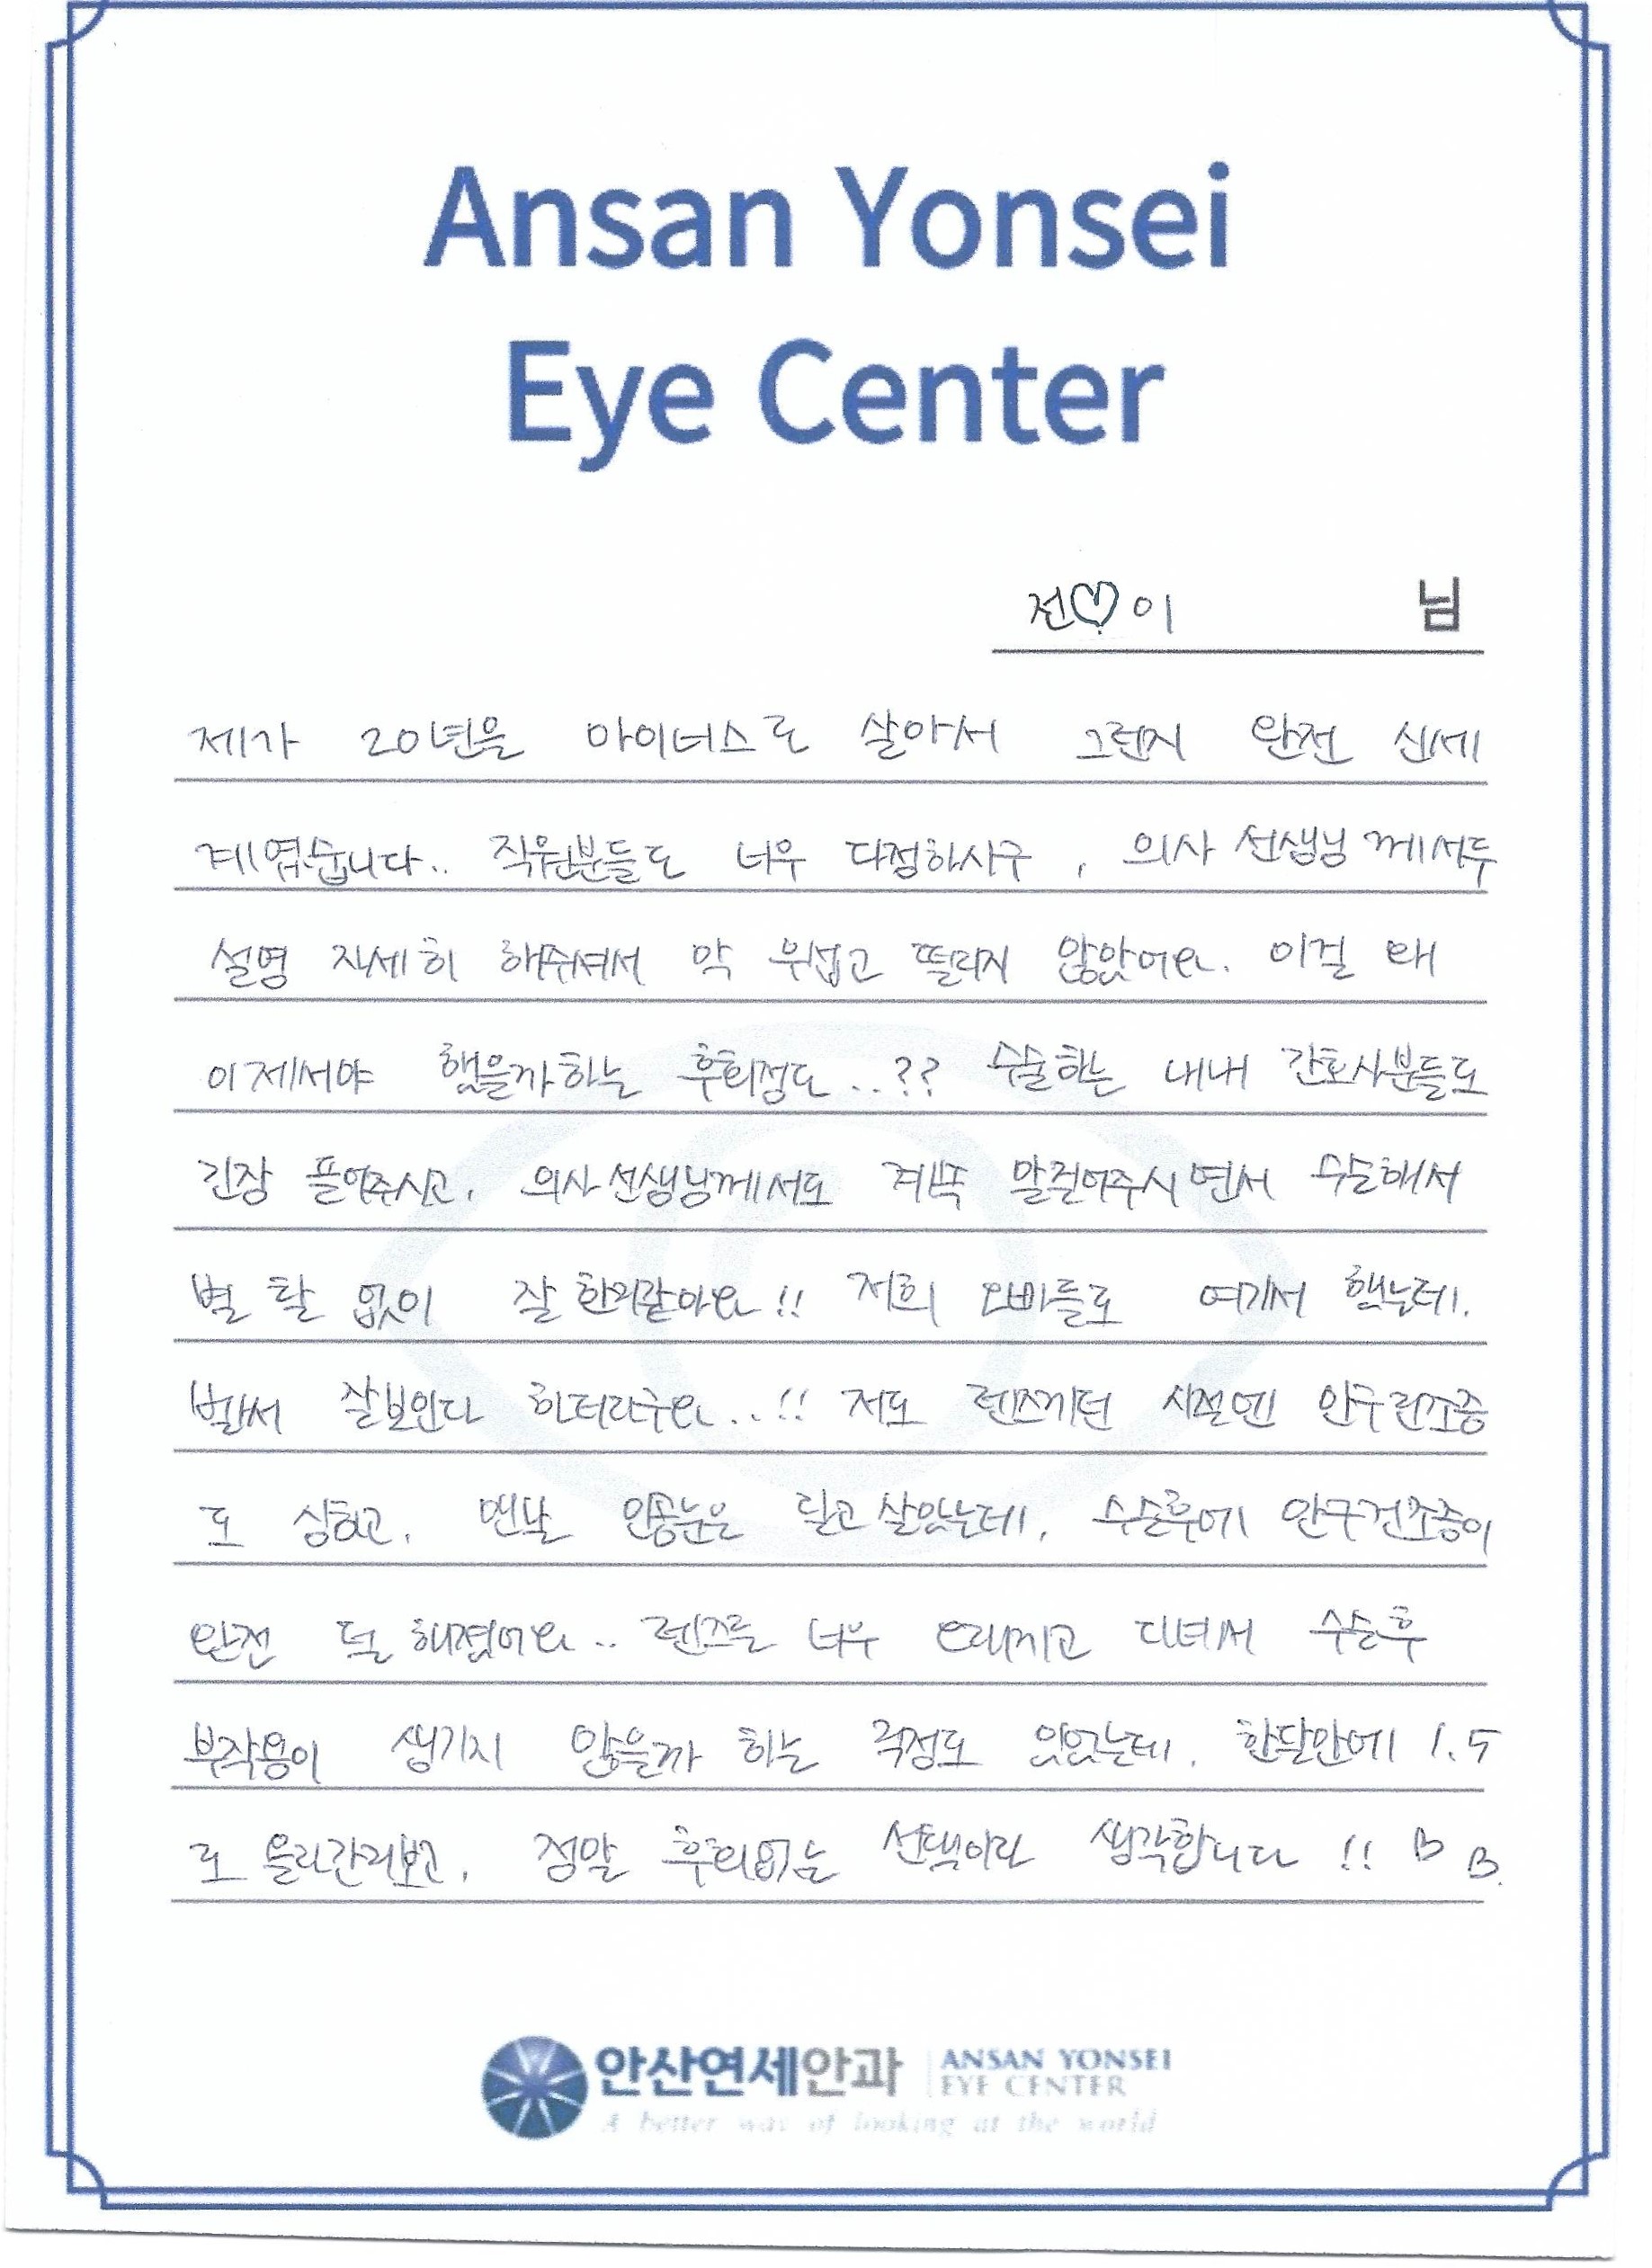 Ansan Yonsei
Eye Center
전♡이 님
제가 20년을 마이너스로 살아서 그런지 완전 신세
계엿습니다.. 직원분들도 너우 다정하시구, 의사 선생님께서두
설명 자세히 해주셔서 막 무섭고 떨리지 않았어요. 이걸 왜
이제서야 했을까하는 후회정도..?? 수술하는 내내 간호사분들도
긴장 풀어주시고, 의사선생님께서도 계속 말걸어주시면서 수술해서
별 탈 없이 잘 한거같아요!! 저희 오빠들도 여기서 했는데,
벌써 잘보인다 하더라구요..!! 저도 렌즈끼던 시절엔 안구건조증
도 심하고, 맨날 인공눈물은 달고 살았는데, 수술후에 안구건조증이
완전 덜 해졌어요.. 렌즈를 너무 오래끼고 다녀서 수술후
부작용이 생기지 않을까 하는 걱정도 있었는데, 한달만에 1.5
로 올라간거보고, 정말 후회없는 선택이라 생각합니다!!
안산연세안과 ANSAN YONSEI
EYE CENTER
A better way of looking at the world